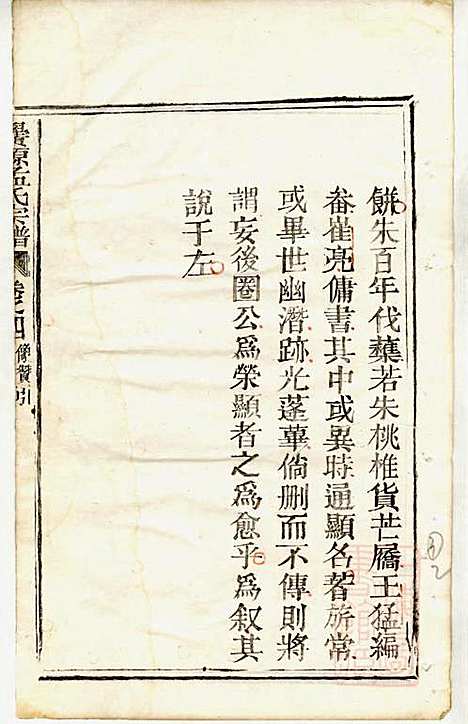 餅朱百年伐蘗若朱桃椎貨芒屩王猛編
畚崔亮傭書其中或異時通顯名著所常
或畢世幽潛跡光蓬蓽倘刪而不傳則將
謂安後圈公為榮顯者之為愈乎為叙其
說于左
源孟氏宗譜
卷之四
像贊引
2